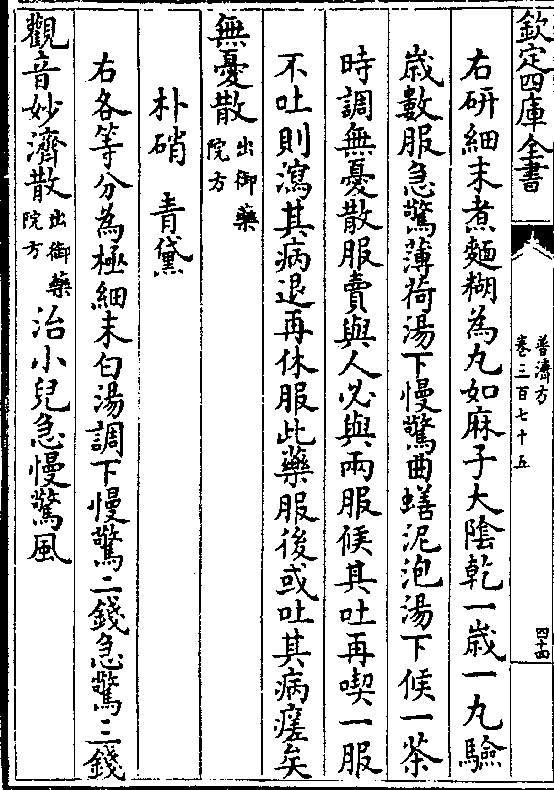 欽定四庫全書
普濟方
卷三百七十五
四十四
右研細末煮麵糊為丸如麻子大陰乾一歲一丸驗
歲數服急驚薄荷湯下慢驚曲蟮泥泡湯下候一茶
時調無憂散服賣與人必與兩服候其吐再喫一服
不吐則瀉其病退再休服此藥服後或吐其病瘥矣
無憂散出御藥院方
朴硝 青黛
右各等分為極細末白湯調下慢驚二錢急驚三錢
觀音妙濟散出御藥院方 治小兒急慢驚風